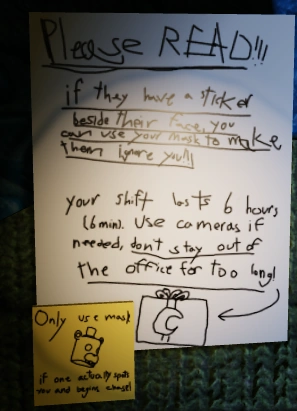 Please READ!!!
if they have a sticker
beside their face, you
can use your mask to make
them ignore you!!
your shift lasts 6 hours
(6min). Use cameras if
needed, don't stay out of
the office for too long!
G
Only use mask
if one actually spots
you and begins chase!